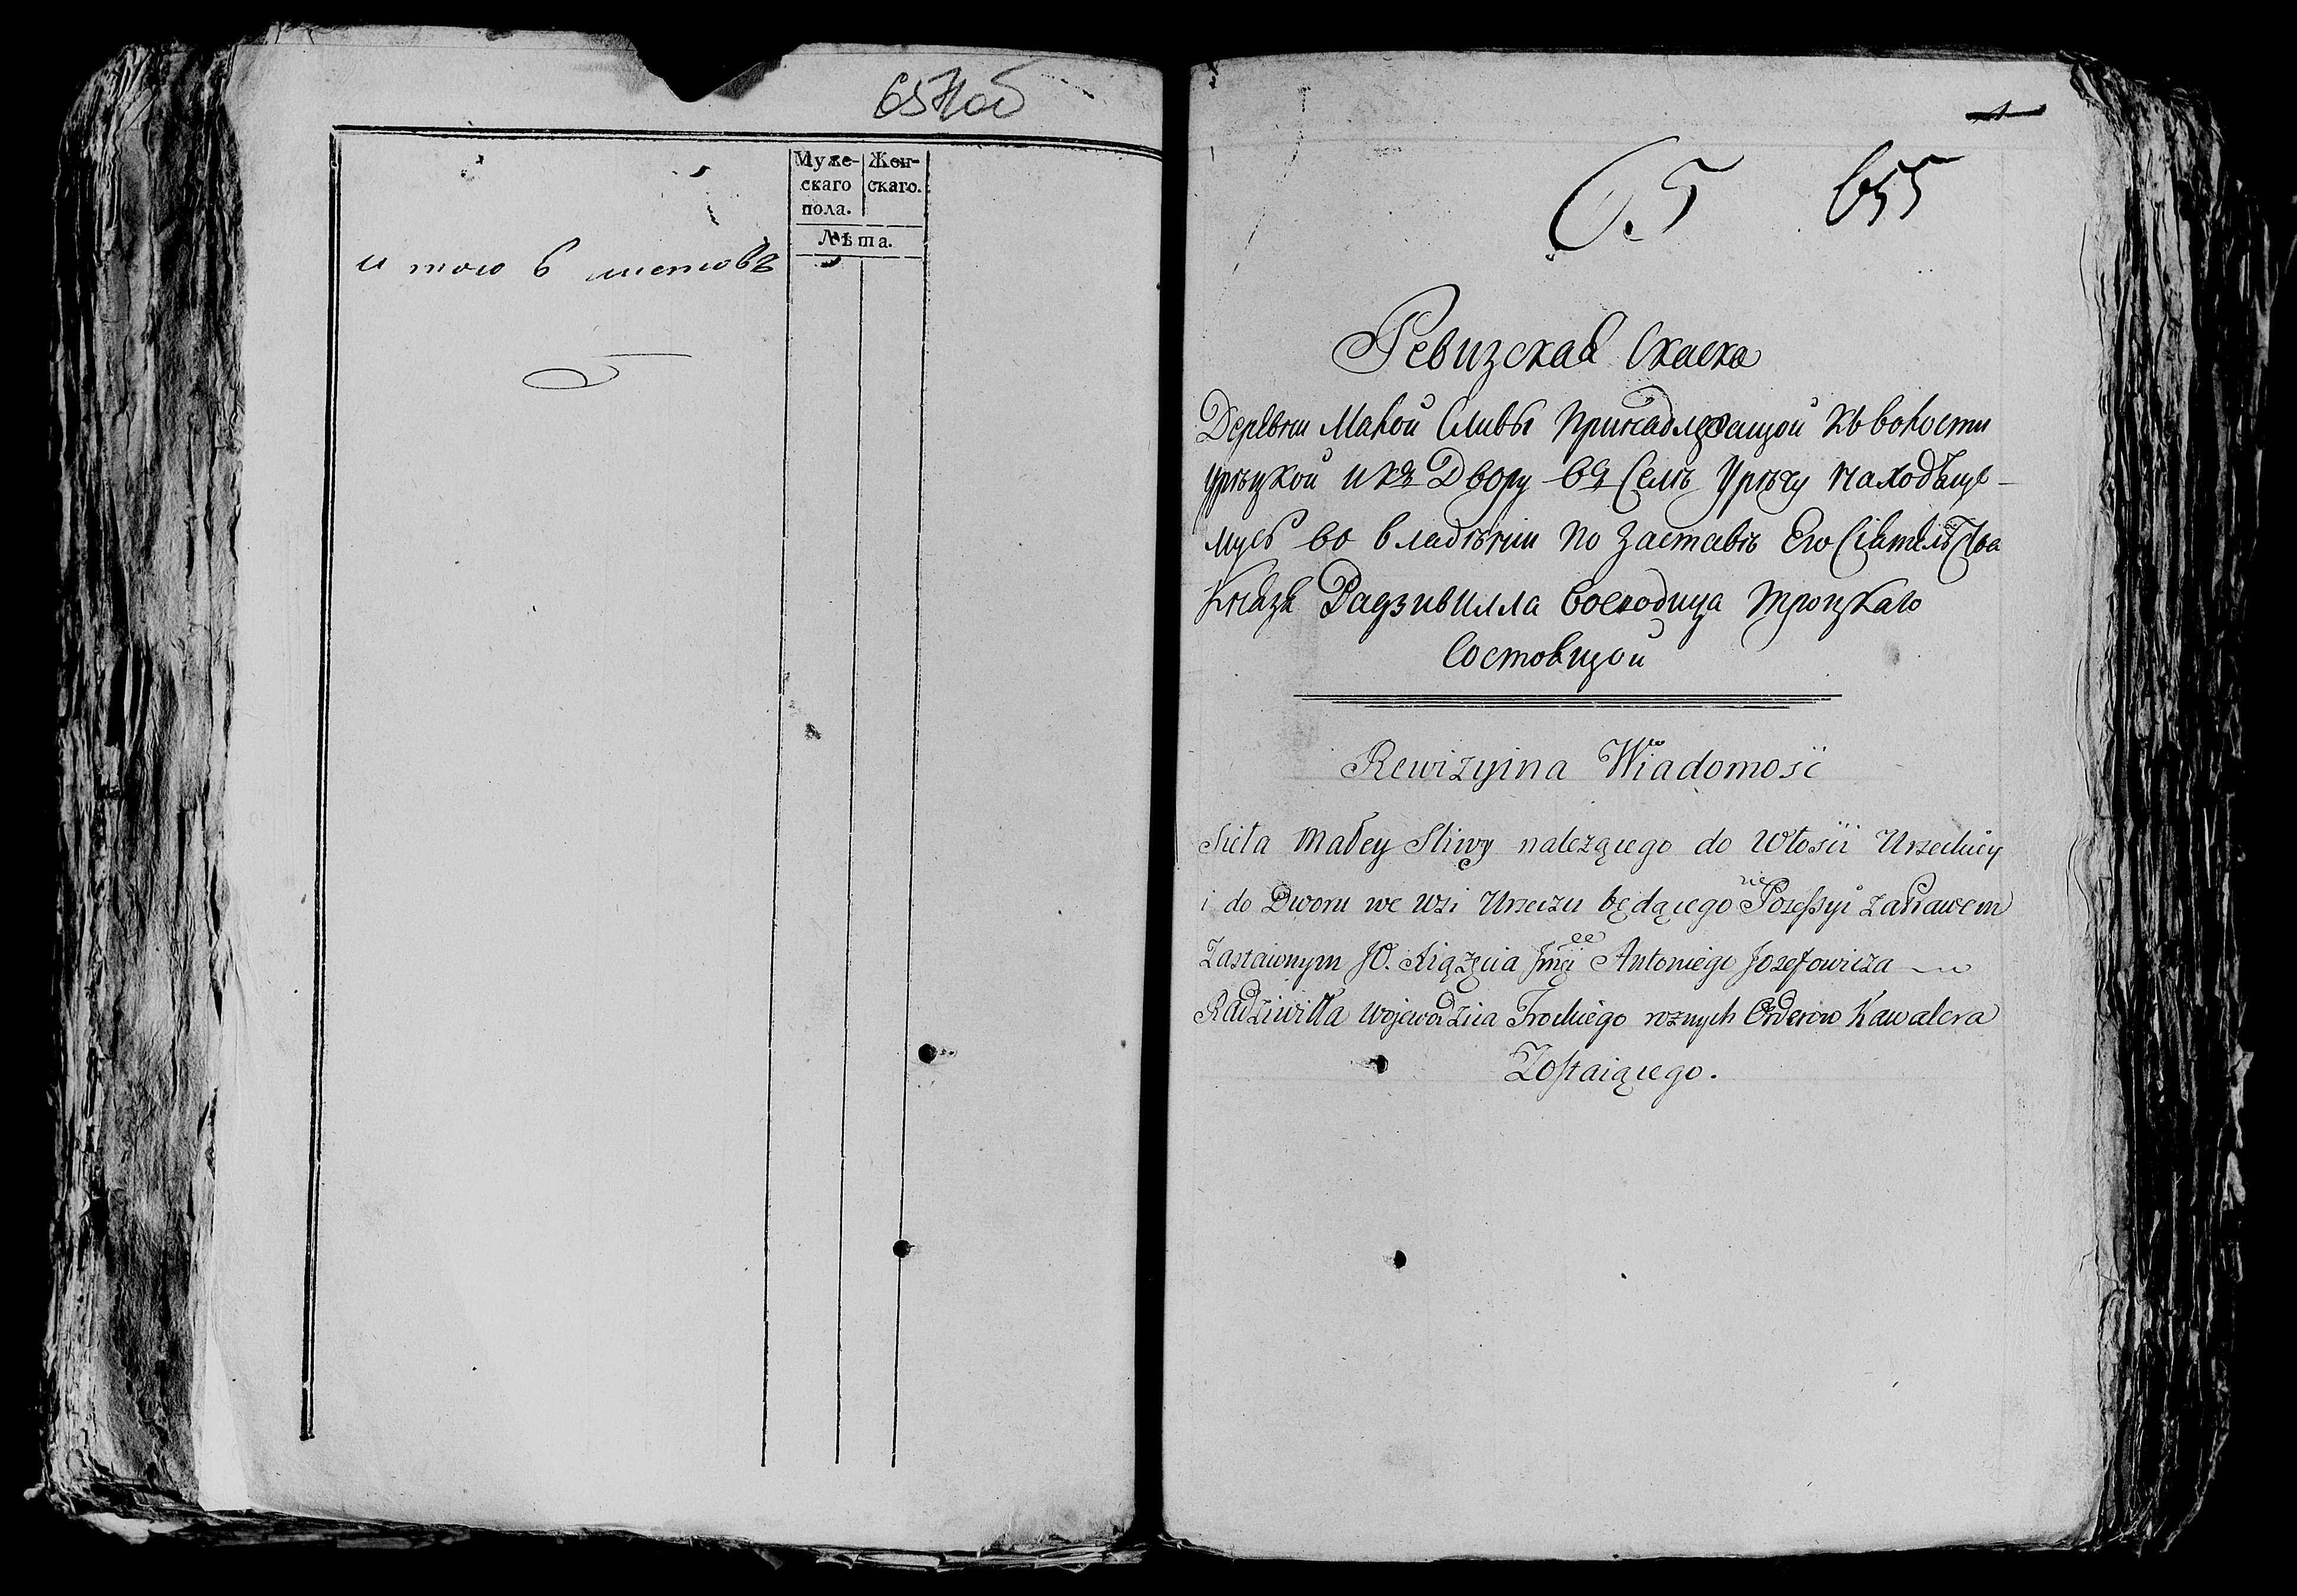 654об
Муже- Жен-
скаго скаго.
пола.
Лѣта.
и того 6 листовъ
1
65 655
Ревизская Скаска
Деревни Малой Сливы принадлежащой къ волости
Урѣцкой и къ Двору въ Селѣ Урѣчу находяще-
муся во владѣнии по заставѣ Его Сіятельства
Князя Радзивилла воеводица троцкаго
Состоящой
Rewizyina Wiadomość
Sieła Małey Sliwy należącego do Włości Urzeckiey
i do Dworu we wsi Urzeczu będącego w Poseſsyi za Prawem
Zastawnym JO. Xiążęcia Jmci Antoniego Jozefowicza
Radziwiłła Wojewodzica Trockiego roznych Orderow Kawalera
Zoſtaiącego.